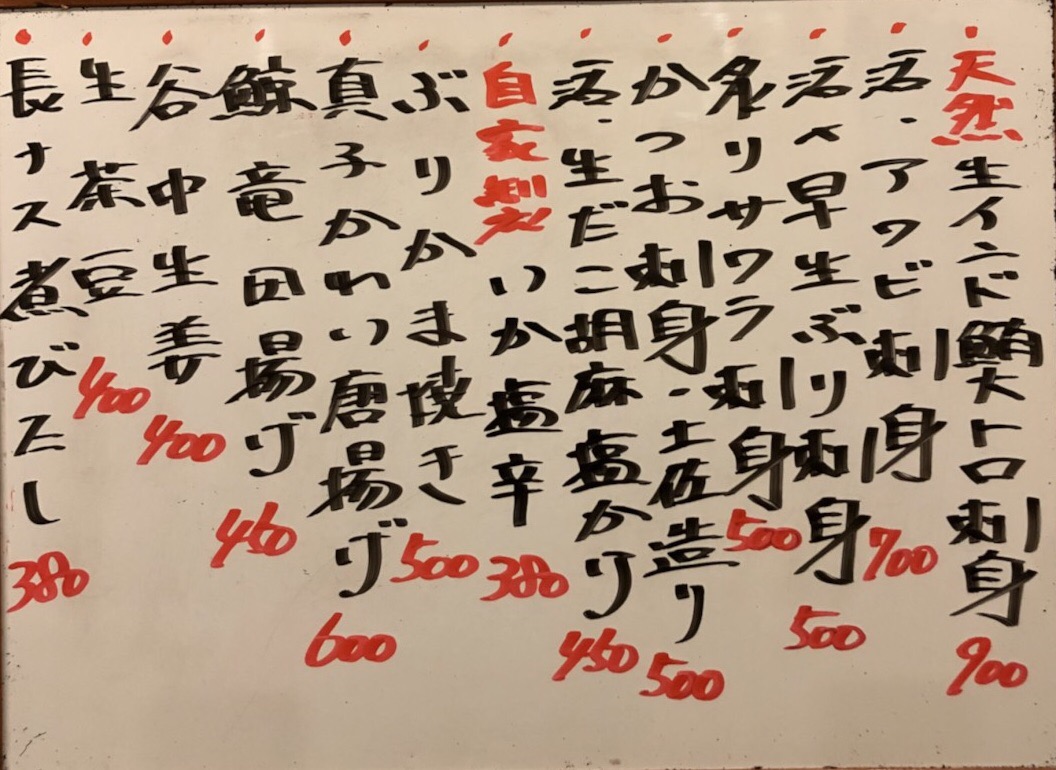 天然生インド鮪大トロ刺身 900
活・アワビ刺身 700
活〆早生ぶり刺身 500
炙りサワラ刺身 500
かつお刺身・土佐造り 500
活・生だこ胡麻塩かり 450
自家製いか塩辛 380
ぶりかま焼き 500
真子かれい唐揚げ 600
鯨竜田揚げ 450
谷中生姜 400
生茶豆 400
長ナス煮びたし 380